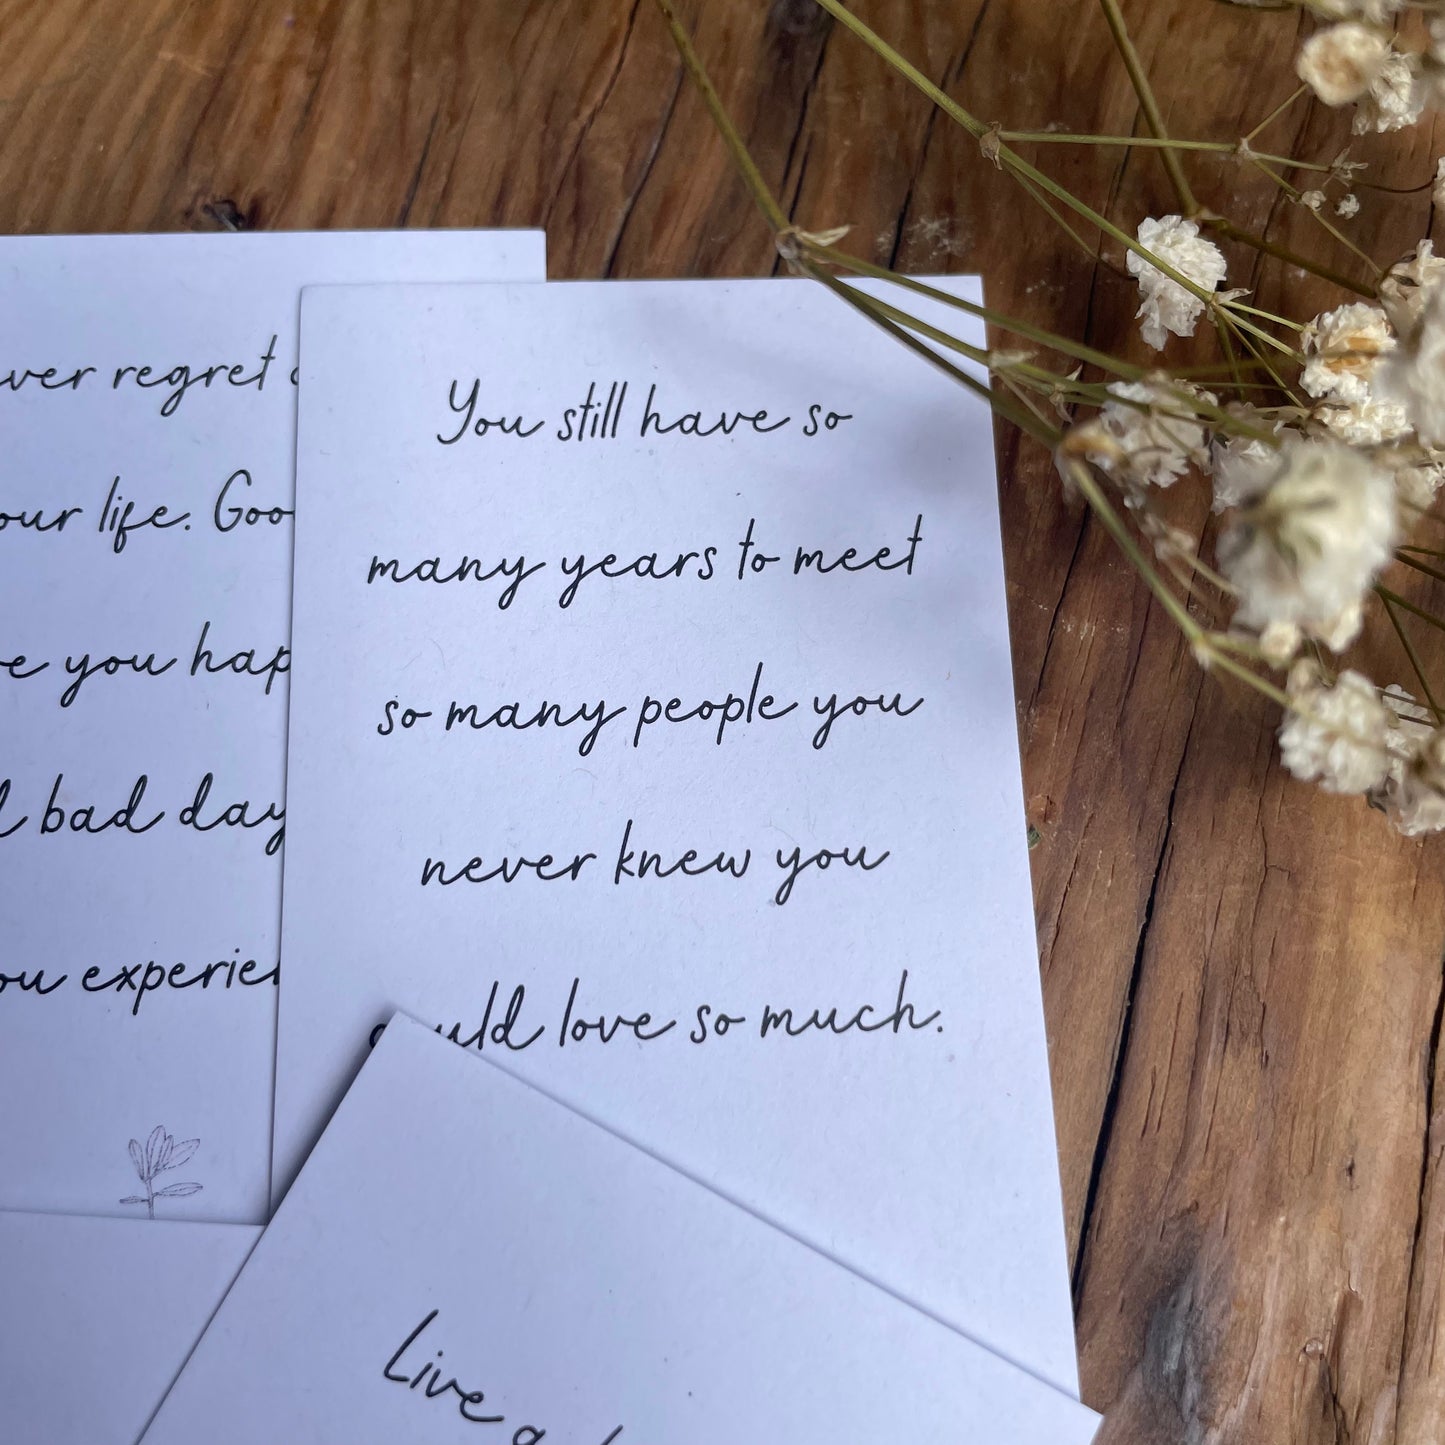 regret
life.
you
bad
experie
You still have so
many years to meet
so many people you
never knew you
could love so much.
Live